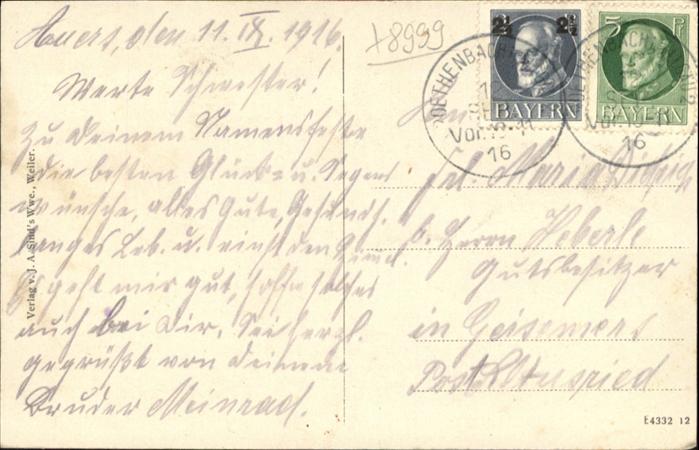 den 11. IX. 1916.
Werte Schwester!
Zu Deinem Namensfeste
die besten Glück= u. Segens
wünsche, alles Gute, Gesundh.
langes Leb. u. einst den Himmel.
Es geht mir gut, hoffe solches
auch bei Dir. Sei herzl.
gegrüßt von Deinem
Bruder Meinrad.
Verlag v. J. A. Wwe., Weiler.
+8999
2½ 2½
BAYERN
5 Pf
BAYERN
ROETHENBACH
Vor.
16
ROETHENBACH
Vor.
16
Frl. Maria
b. Herrn Heberle
Gutsbesitzer
in
Post
E4332 12